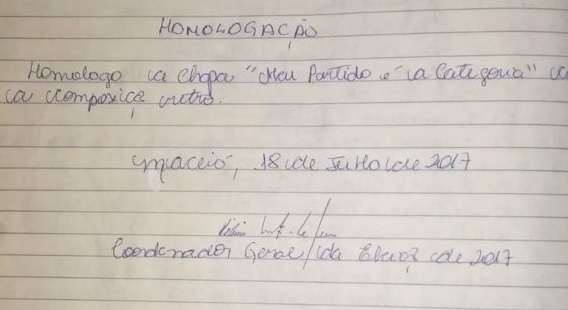 HOMOLOGAÇÃO
Homologo a Chapa "Meu Partido é a Categoria"
a composiçe
Maceió, 18 de Julho de 2017
Coordenador Geral/da de 2017